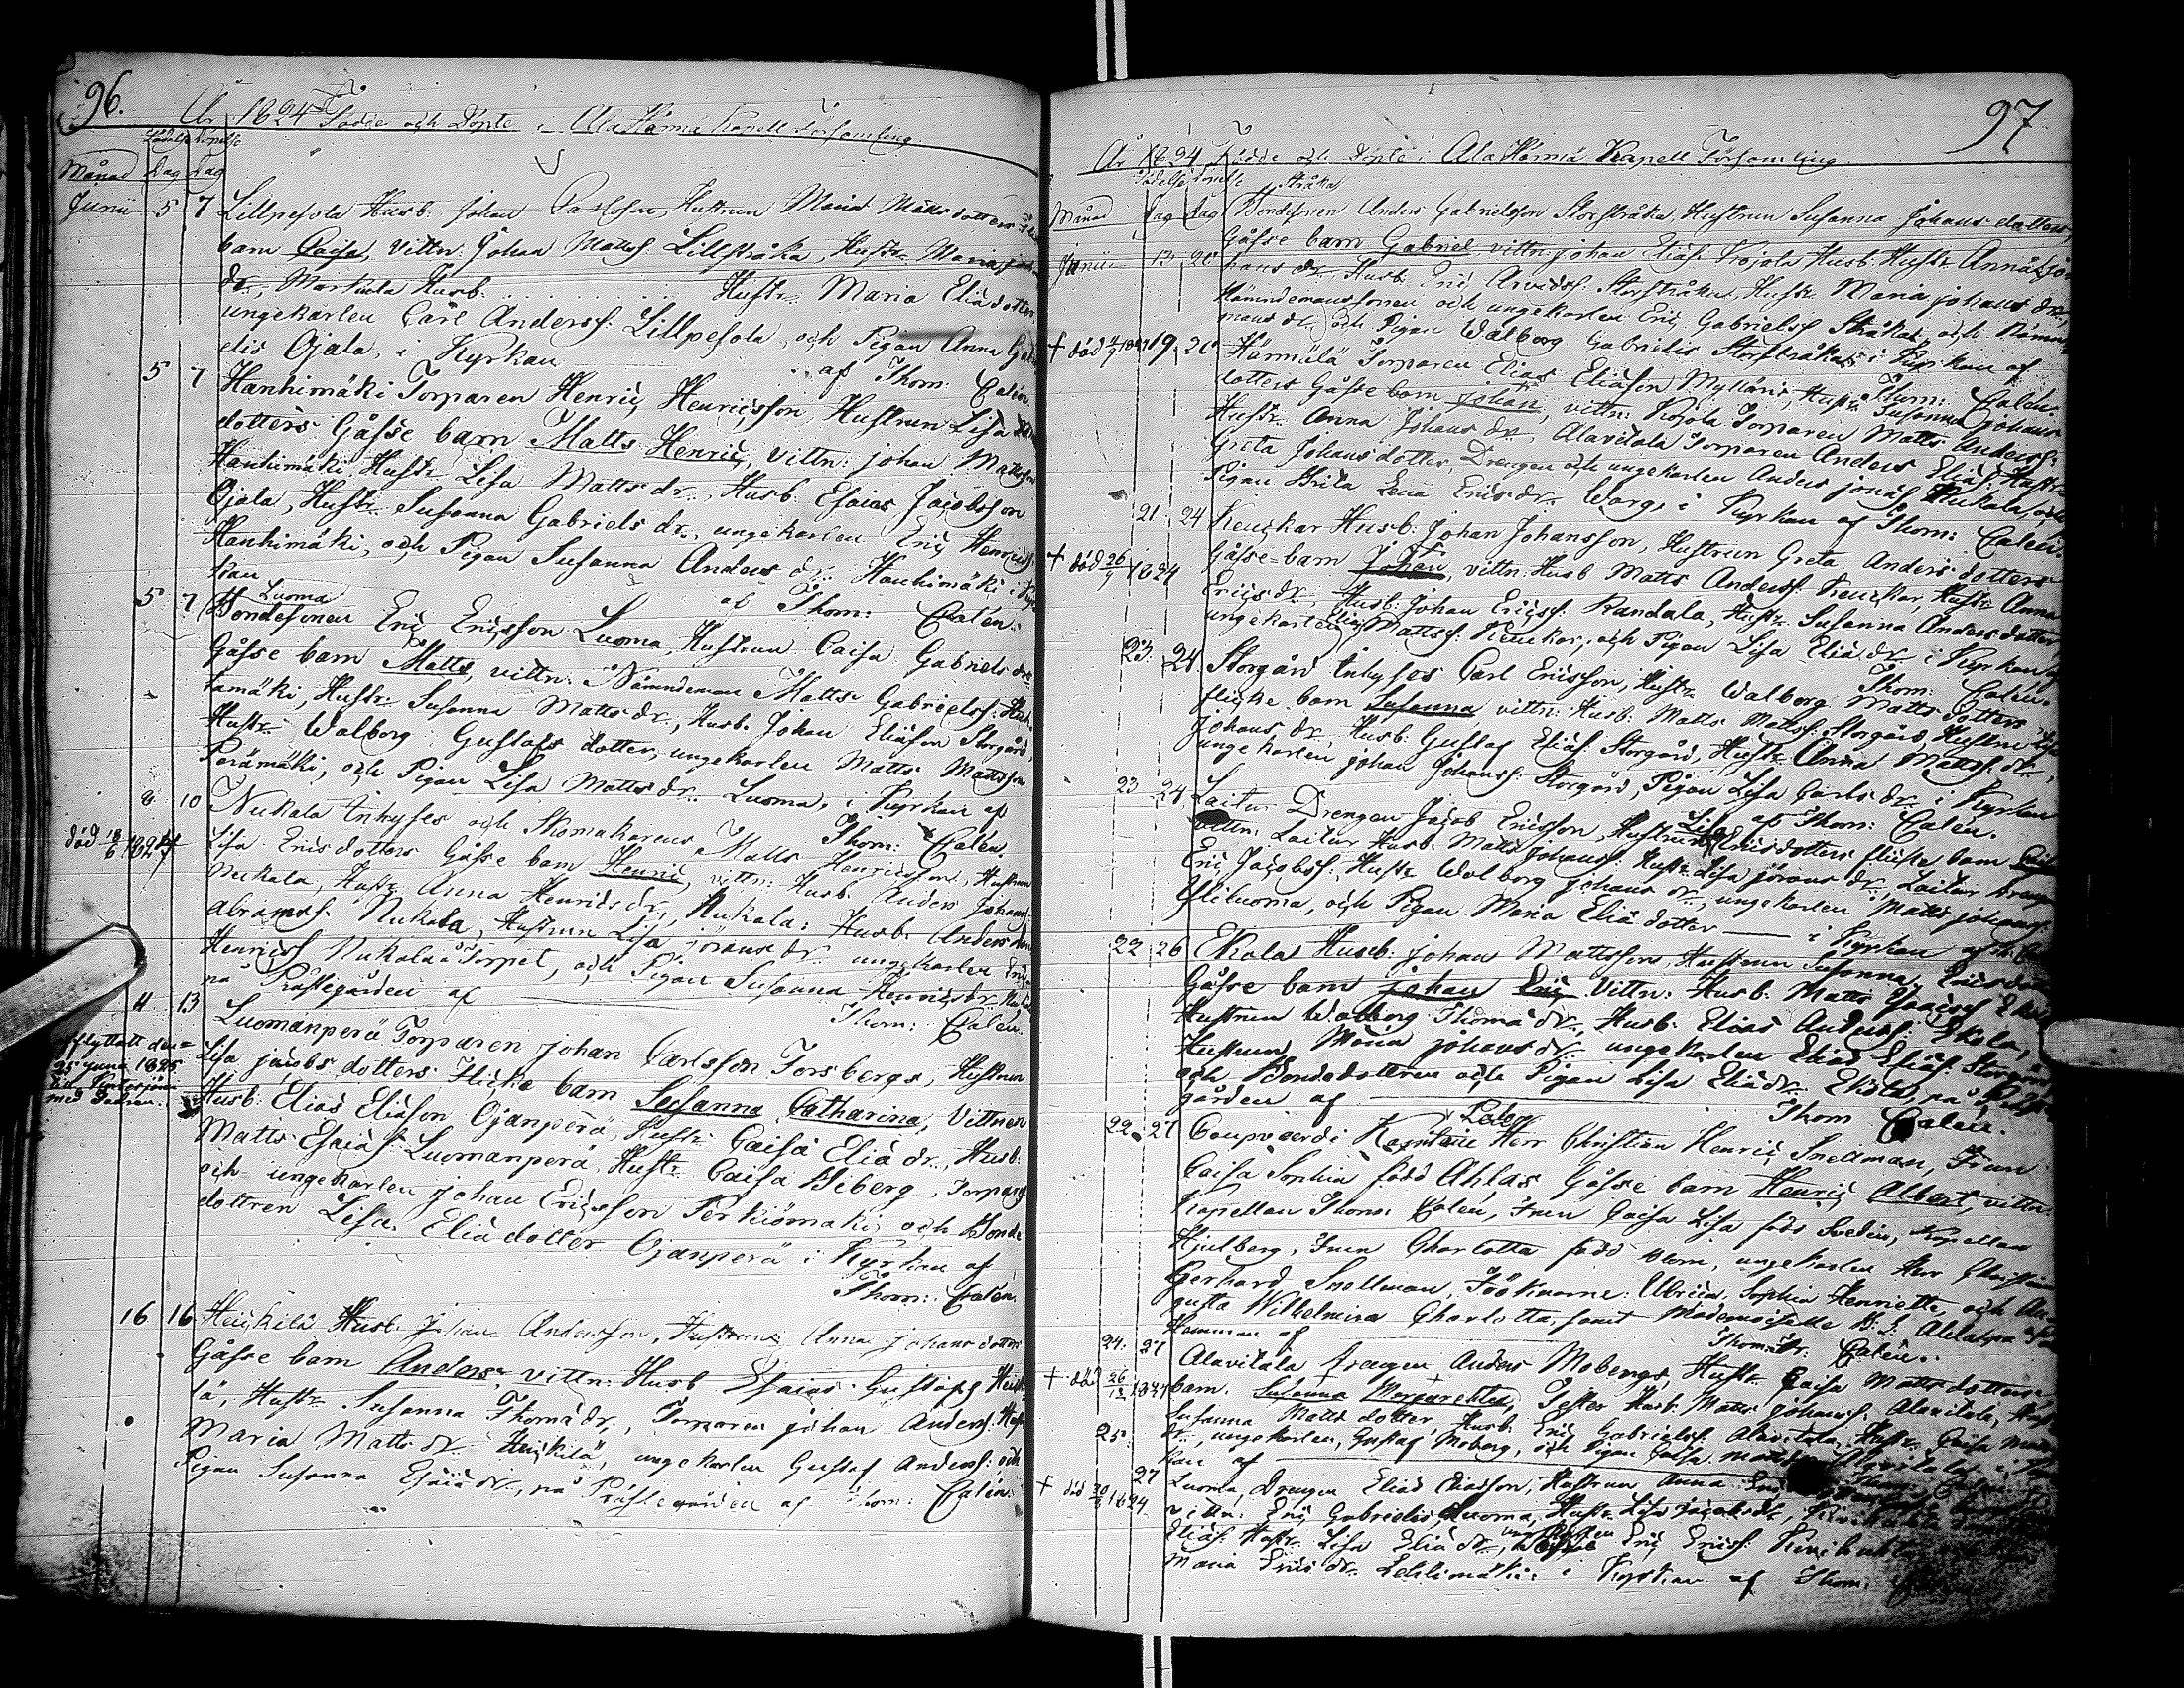 96.
År 1824 Födde och Döpte i Ala Härmä Kapell Församling.
Födelse Döpelse
Månad Dag Dag
Junii 5 7 Lillpesola Husb. Johan Carlsson, Hustrun Maria Matts dotters
barn Caisa, vittn: Johan Mattss: Lillstråka, Hustr: Maria
dr., Markula Husb. . . . . . . . . Hustr. Maria Elia dotter
ungekarlen Carl Anderss: Lillpesola, och Pigan Anna
elis Ojala, i Kyrkan af Thom: Calén
5 7 Hanhimäki Torparen Henric Henricsson, Hustrun Lisa
dotters Gåsse barn Matts Henric, vittn: Johan Mattsson
Hanhimäki Hustr Lisa Matts dr., Husb. Esaias Jacobsson
Ojala, Hustr. Susanna Gabriels dr., ungekarlen Eric Henricss:
Hanhimäki, och Pigan Susanna Anders dr. Hanhimäki i Kyr
kan af Thom: Calén.
Luoma
5 7 Bondesonen Eric Ericsson Luoma, Hustrun Caisa Gabriels drs
Gåsse barn Matts, vittn: Nämndeman Matts Gabrielss:
tamäki, Hustr. Susanna Matts dr., Husb. Johan Eliasson Storgård,
Hustr. Walborg Gustafs dotter, ungekarlen Matts Mattsson
Perämäki, och Pigan Lisa Matts dr. Luoma, i Kyrkan af
Thom: Calén.
8 10 Nukala Inhyses och Skomakarens Matts Henricsson, Hustrun
död 18/6 1824
Lisa Ericsdotters Gåsse barn Henric, vittn: Husb. Anders Johanss:
Nukala, Hustr. Anna Henrics dr., Nukala: Husb. Anders
Abramss. Nukala, Hustrun Lisa Jörans dr. ungekarlen Eric
Henricss Nukala Torpet, och Pigan Susanna Henrics dr.
på Prästegården af Thom: Calén.
4 13 Luomanperä Torparen Johan Carlsson Forsbergs, Hustrun
afflyttatt den
25 Junii 1825
med Fadren.
Lisa Jacobs dotters Flicke barn Susanna Catharina, Vittnen
Husb: Elias Eliasson Ojanperä, Hustr. Caisa Elia dr., Husb.
Matts Esaiass: Luomanperä, Hustr Caisa Iseberg, Torpare
och ungekarlen Johan Ericsson Perkiömäki och Bonde
dottren Lisa Elia dotter Ojanperä i Kyrkan af
Thom: Calén.
16 16 Heickilä Husb. Johan Andersson, Hustrun Anna Johans dotters
Gåsse barn Anders, vittn: Husb Esaias Gustafss Heicki
lä, Hustr. Susanna Thoma dr., Torparen Johan Anderss: Hustr
Maria Matts dr. Heickilä, ungekarlen Gustaf Anderss: och
Pigan Susanna Esaia dr., på Prästegården af Thom: Calén.
97
År 1824 Födde och Döpte i Ala Härmä Kapell Församling.
Födelse Döpelse
Månad Dag Dag
Stråka
Bondesonen Anders Gabrielsson Storstråka, Hustrun Susanna Johans dotters
Junii 13 20 Gåsse barn Gabriel, vittn: Johan Eliass. Kojola Husb. Hustr. Anna Jo
hans dr. Husb. Eric Arvidss. Storstråka, Hustr. Maria Johans dr.,
Nämndemanssonen och ungekarlen Eric Gabrielss Stråka, och Nämnde
mans dr. och Pigan Walborg Gabrielis Storstråka i Kyrkan af
Thom: Calén.
19 20 Härmälä Torparen Elias Eliasson Mylläri, Hustr. Susanna Johans
dotters Gåsse barn Johan, vittn: Kojola Torparen Matts Anderss:
Hustr. Anna Johans dr., Alavitala Torparen Anders Eliass: Hustr
Greta Johans dotter, Drengen och ungekarlen Anders Jonass. Nukala, och
Pigan Brita Lena Erics dr. Warg, i Kyrkan af Thom: Calén.
21 24 Keuckar Husb: Johan Johansson, Hustrun Greta Anders dotters
+ död 26/4 1824
Gåsse-barn Johan, vittn: Husb Matts Anderss: Keuckar, Hustr. Anna
Erics dr., Husb: Johan Ericss. Kandala, Hustr. Susanna Anders dotter
ungekarlen Elias Mattss: Keuckar, och Pigan Lisa Elia dr. i Kyrkan af
Thom: Calén.
23 24 Storgård Inhyses Carl Ericsson, Hustr. Walborg Matts dotters
flicke barn Susanna vittn: Husb: Matts Mattss. Storgård, Hustrun Lisa
Johans dr. Husb. Gustaf Eliass: Storgård, Hustr. Anna Mattss: dr.,
ungekarlen Johan Johanss: Storgård, Pigan Lisa Carls dr. i Kyrkan
af Thom: Calén.
23 24 Laitur Drengen Jacob Ericsson, Hustrun Lisa Ericsdotters flicke barn
vittn: Laitur Husb. Matts Johanss: Hustr. Lisa Jörans dr., Laitur Drengen
Eric Jacobss: Hustr. Walborg Johans dr., ungekarlen Matts Johanss:
Yliluoma, och Pigan Maria Elia dotter i Kyrkan af
22 26 Ekola Husb: Johan Mattsson, Hustrun Susanna Ericsdotters
Gåsse barn Johan Eric Vittn: Husb: Matts Isacss Ekola
Hustrun Walborg Thoma dr., Husb: Elias Anderss: Ekola,
Hustrun Maria Johans dr. ungekarlen Elias Eliass: Storgård
och Bondedottren och Pigan Lisa Elia dr. Ekola, på Präste
gården af Thom Calén.
22 27 Coupvaerdi Kapitaine Herr Christian Henric Snellman, Frun
Caisa Sophia född Ahlas Gåsse barn Henric Albert, vittn.
Kapellan Thom: Calén, Frun Caisa Lisa född Svedin, Kapellan
Hjulberg, Frun Charlotta född Blom, ungekarlen Herr Christian
Gerhard Snellman, Fröknarne: Ulrica Sophia Henriette och Au
gusta Wilhelmina Charlotta, samt Mademoiselle
af Thom: Calén.
24 27 Alavitala Drengen Anders Mobergs, Hustr. Caisa Matts dotters
+ död 26/12 1824
barn. Susanna Margaretha, Testes Husb: Matts Johanss: Alavitala, Hustr
Susanna Matts dotter, Husb: Eric Gabrielss. Alavitala, Hustr. Caisa
dr., ungekarlen, Gustaf Moberg, och Pigan Caisa Matts dr. Alavitala i Kyr
kan af
25 27 Luoma, Drengen Elias Eliasson, Hustrun Anna
+ död 1824
vittn: Eric Gabrielis Luoma, Hustr. Lisa Jacobs dr.,
Eliass. Hustr. Lisa Elia dr., ungekarlen Eric Ericss:
Maria Erics dr. Lehtimäki i Kyrkan af Thom: